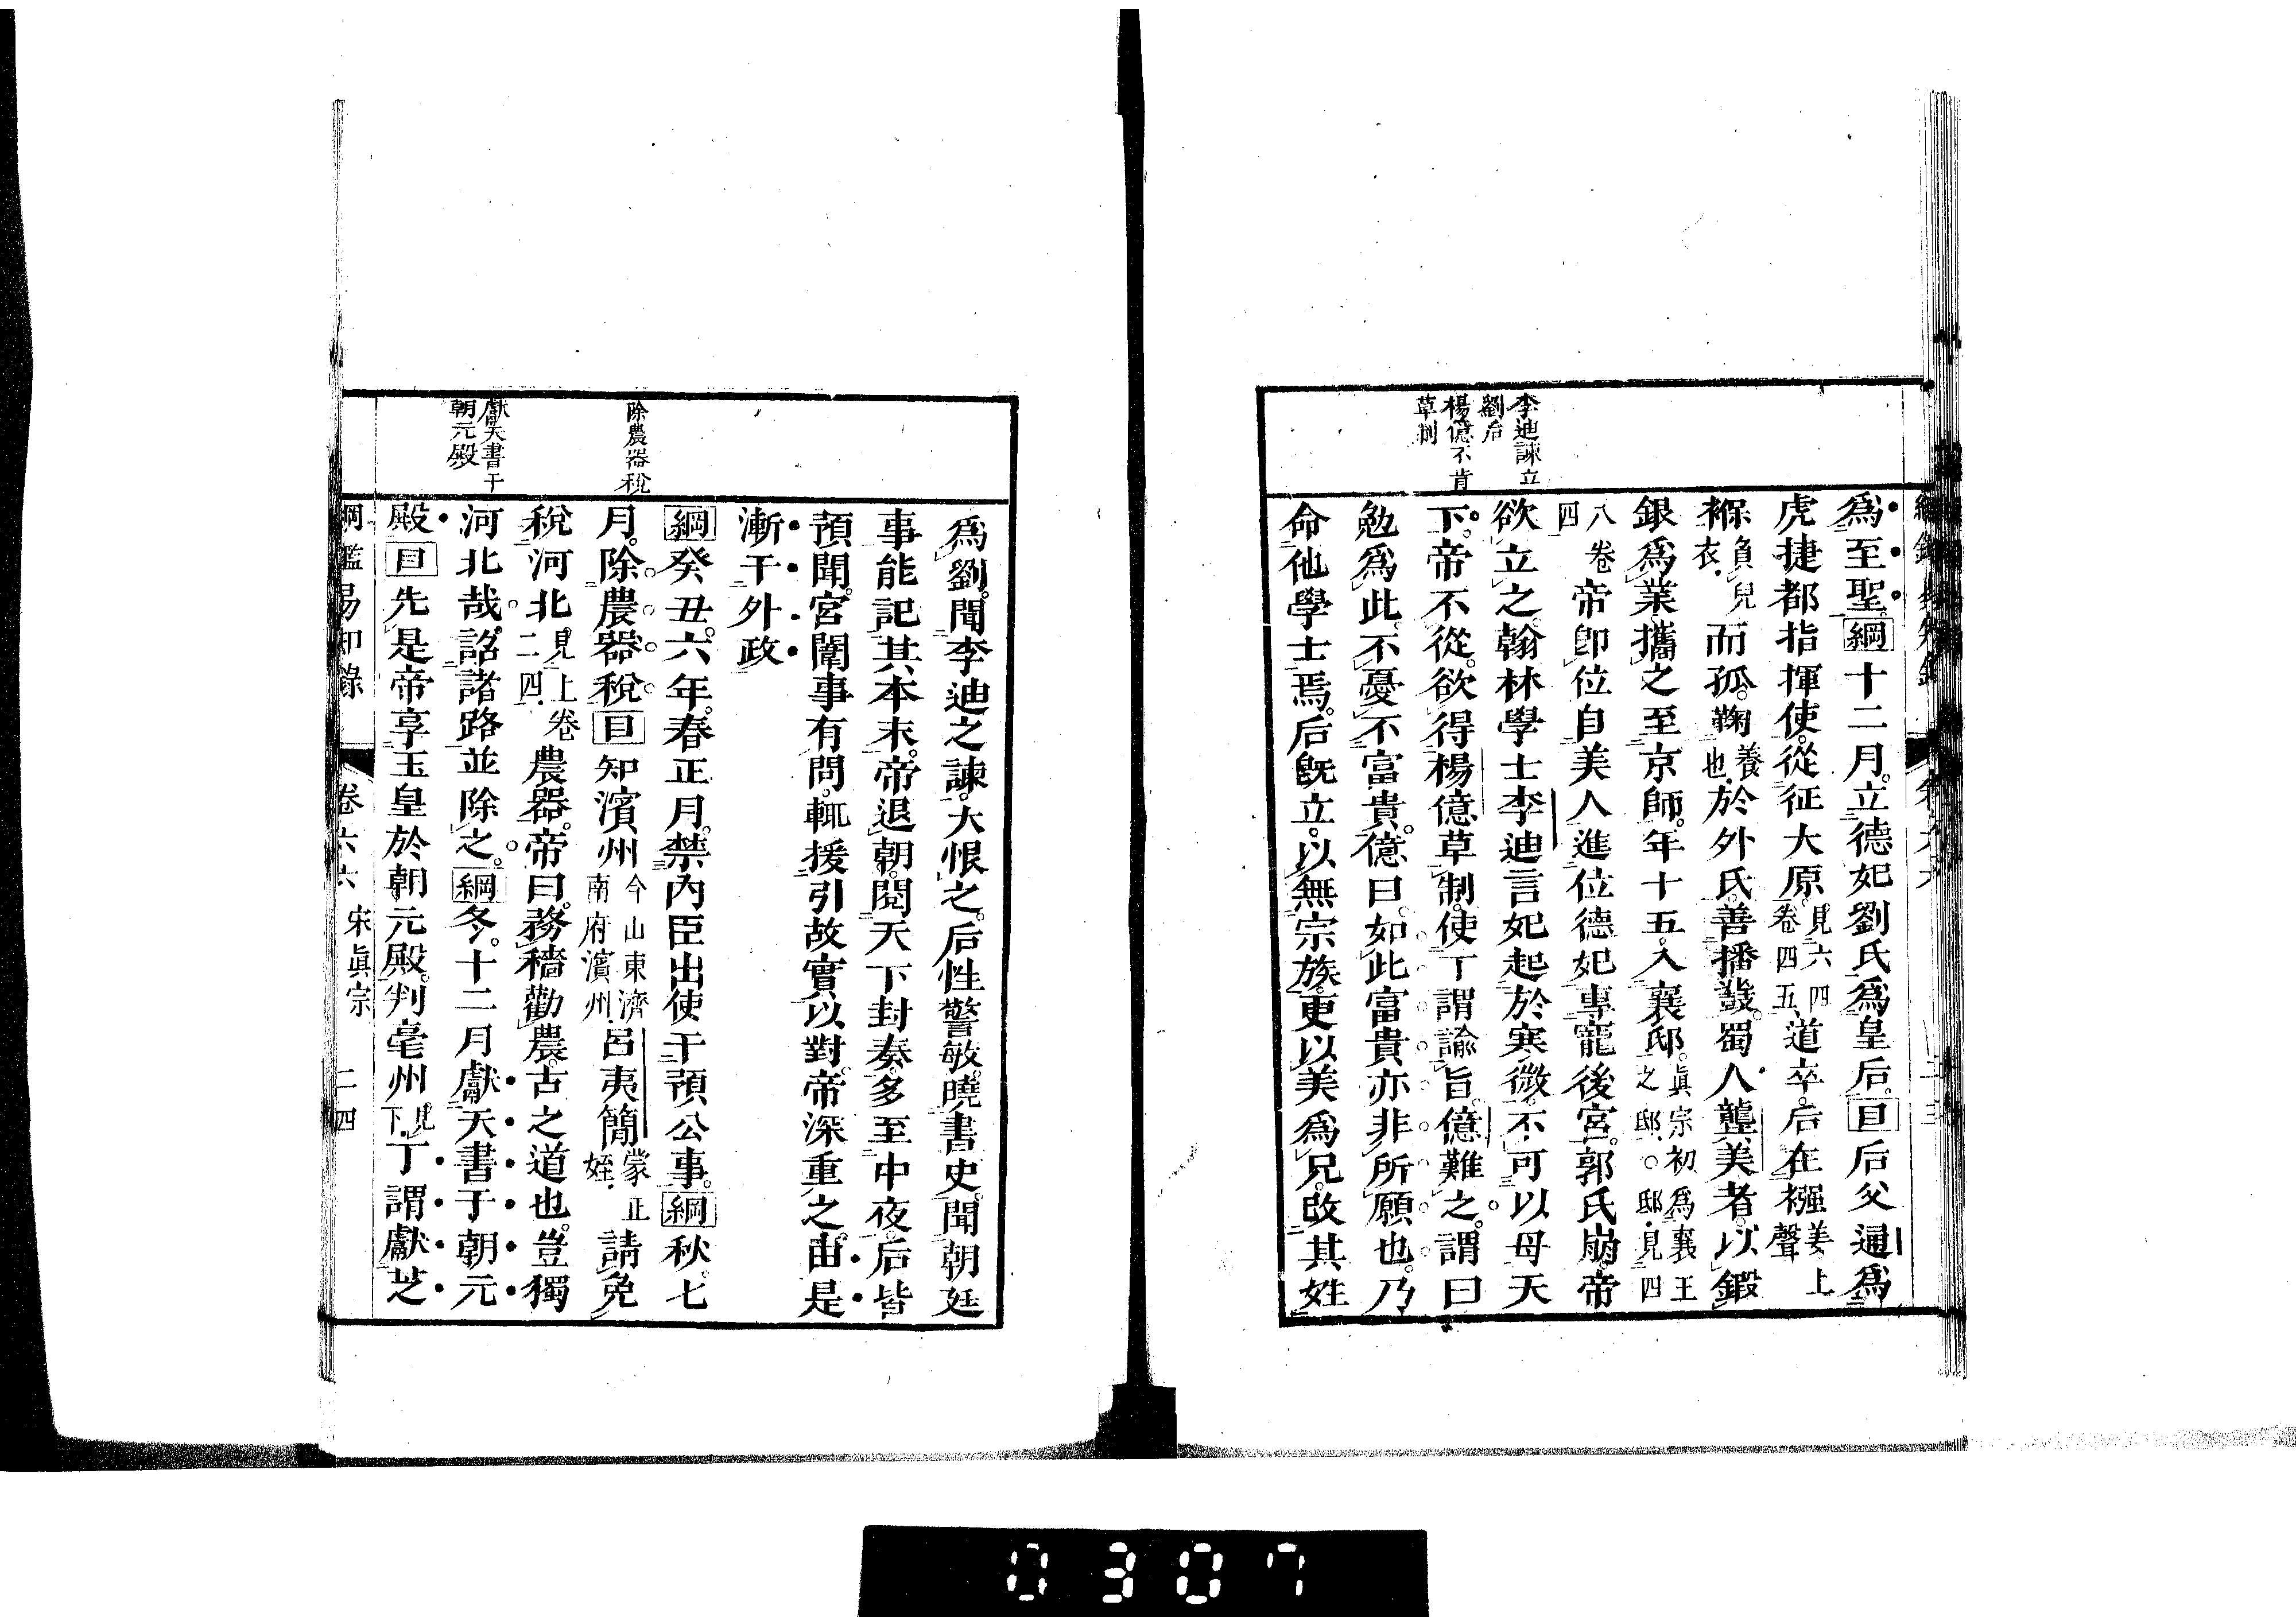 李迪諫立
劉后
楊億不肯
草制
為至聖。綱十二月。立德妃劉氏為皇后。目后父通為
虎捷都指揮使。從征大原。見六四卷四五。道卒。后在襁姜上聲
褓負兒衣。而孤。鞠養也。於外氏。善播鼗。蜀人龔美者。以鍛
銀為業。攜之至京師。年十五。入襄邸。真宗初為襄王之邸。○邸。見四
八卷四帝卽位。自美人進位德妃。專寵後宮。郭氏崩。帝
欲立之。翰林學士李迪言。妃起於寒微。不可以母天
下。帝不從。欲得楊億草制。使丁謂諭旨。億難之。謂曰
勉為此。不憂不富貴。億曰。如此富貴。亦非所願也。乃
命他學士焉。后旣立。以無宗族。更以美為兄。改其姓
除農器稅
獻天書于
朝元殿
為劉。聞李迪之諫。大恨之。后性警敏。曉書史。聞朝廷
事能記其本末。帝退朝。閱天下封奏。多至中夜。后皆
預聞。宮闈事有問。輒援引故實以對。帝深重之。由是
漸干外政
綱癸丑。六年。春正月。禁內臣出使干預公事。綱秋七
月。除農器稅目知濱州今山東濟南府濱州。呂夷簡蒙正姪。請免
稅河北見上卷二四。農器。帝曰。務穡勸農。古之道也。豈獨
河北哉。詔諸路並除之。綱冬。十二月。獻天書于朝元
殿目先是帝享玉皇於朝元殿。判亳州見下。丁謂獻芝
綱鑑易知錄 卷六六 宋眞宗 二四